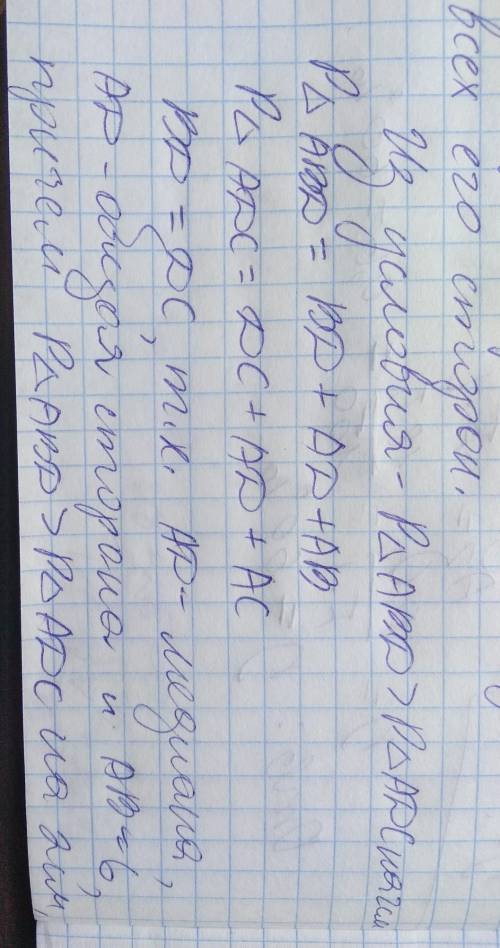 всех его сторон.
Из условия - P△ ABD > P△ ADC на 2 см
P△ ABD = BD + AD + AB
P△ ADC = DC + AD + AC
BD = DC, т.к. AD - медиана,
AD - общая сторона и AB = 6,
причем P△ ABD > P△ ADC на 2 см,